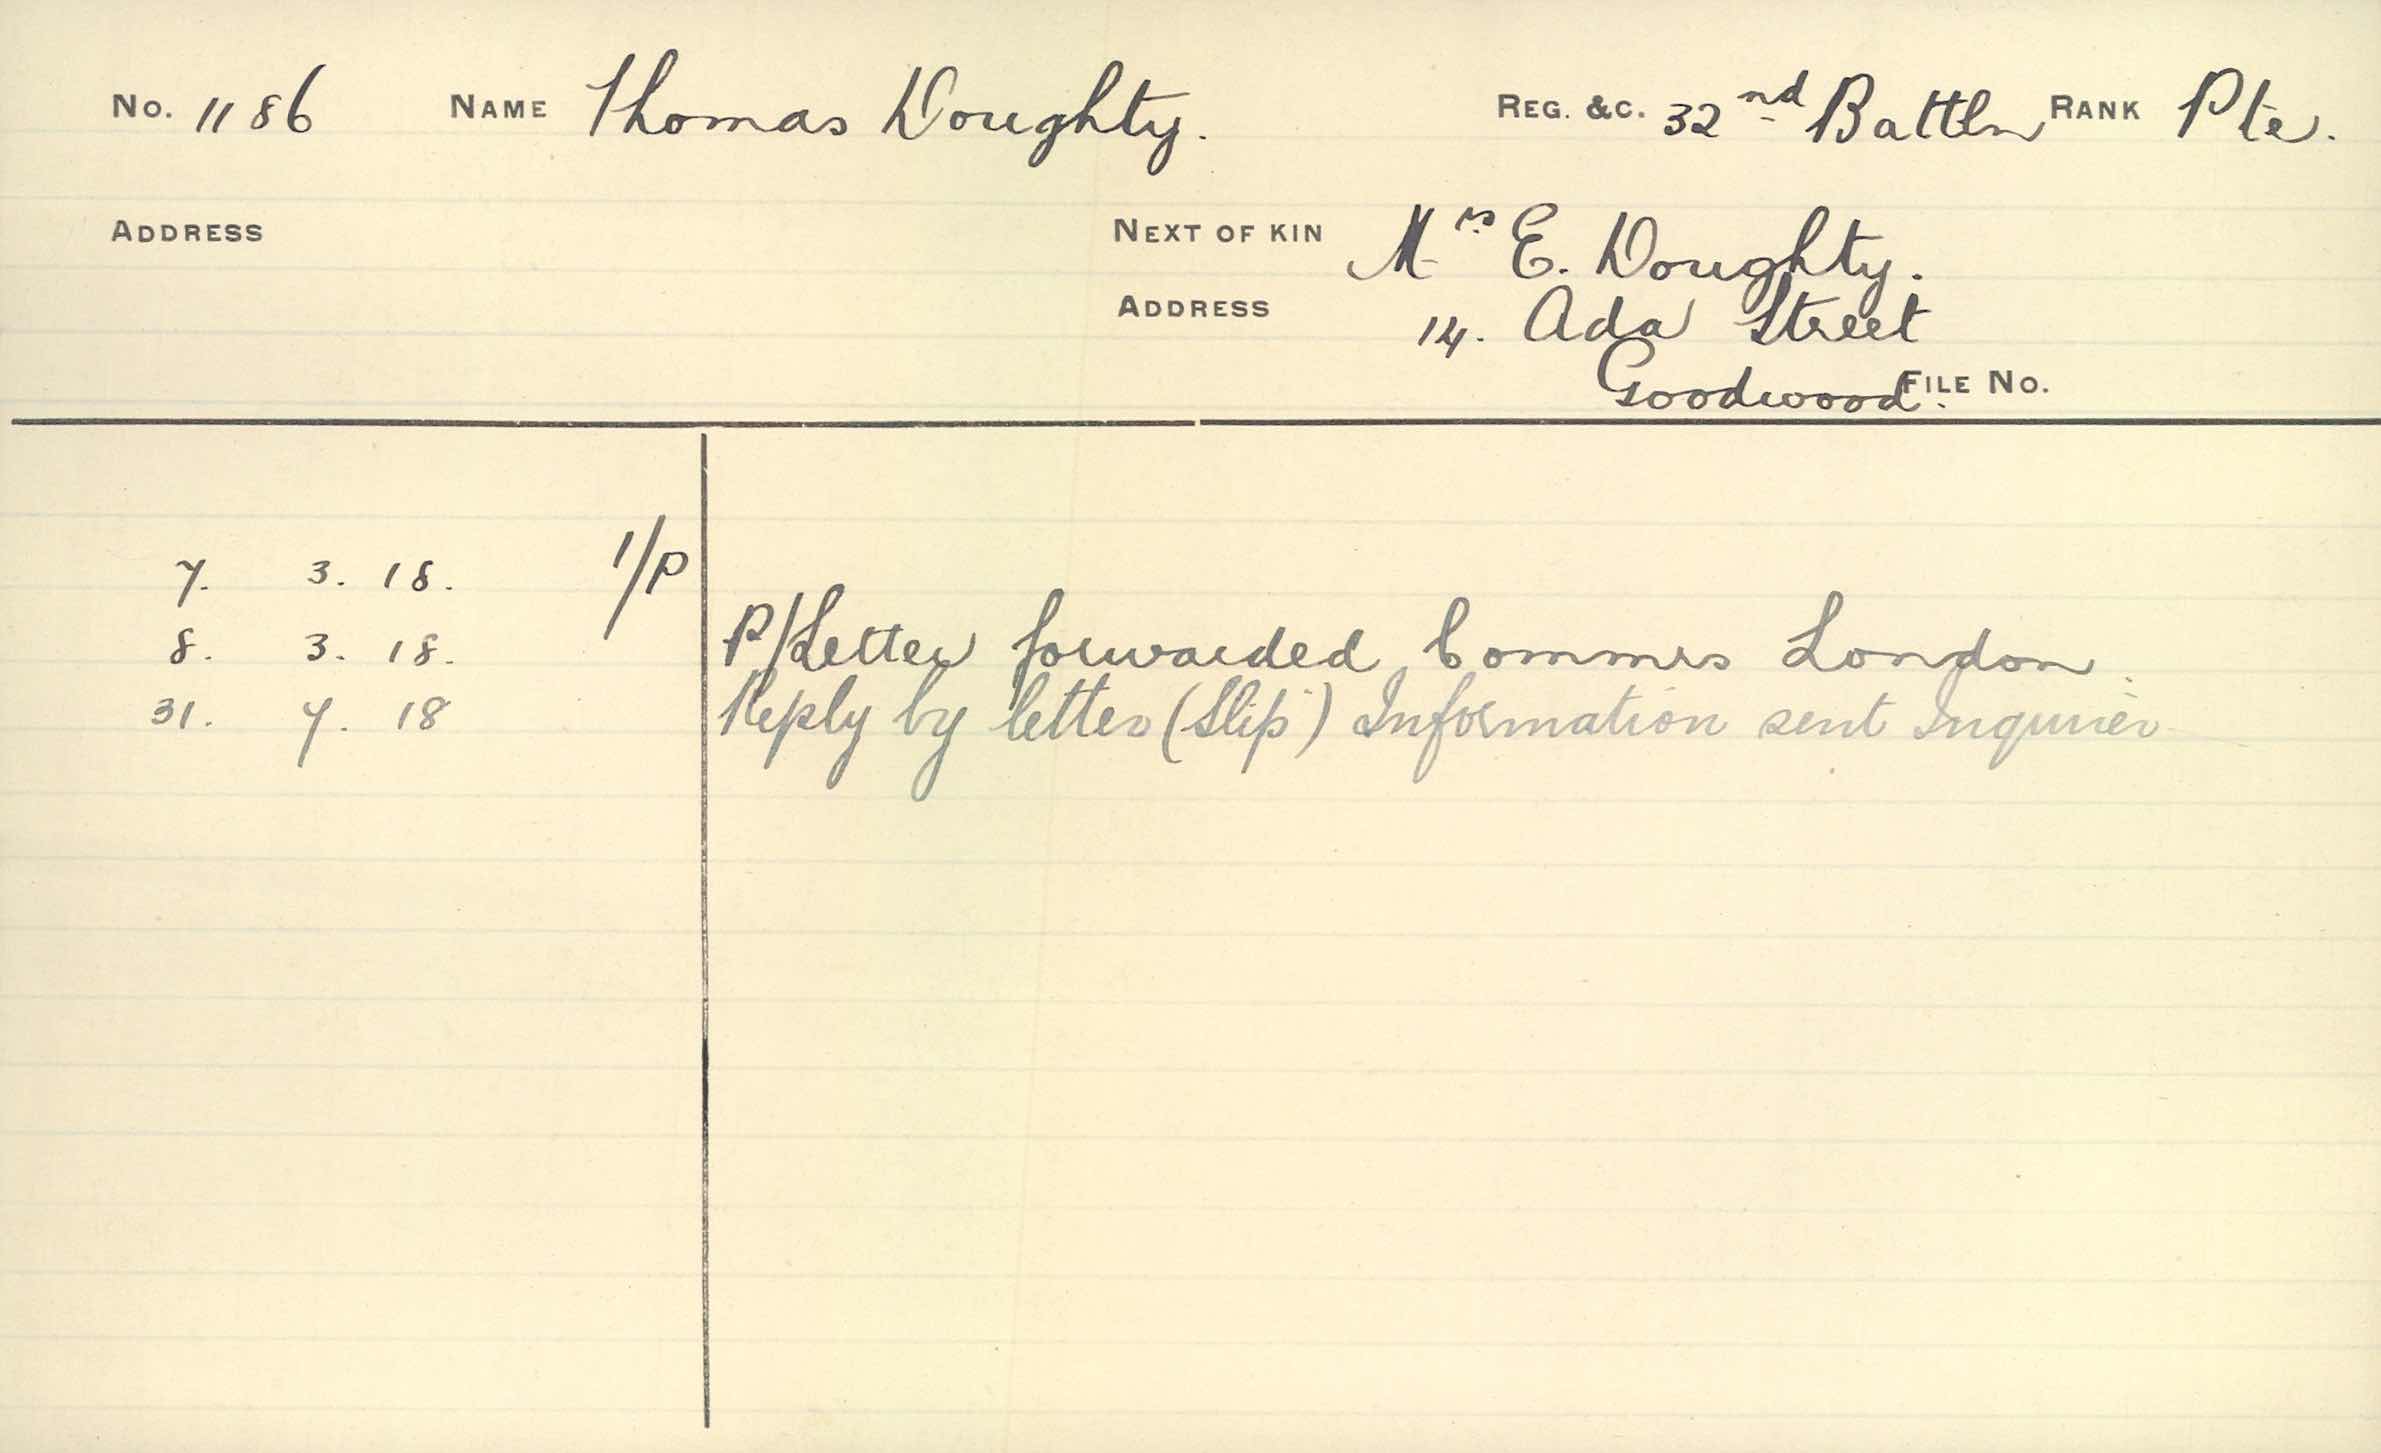 No. 1186 NAME Thomas Doughty. REG. &C. 32nd Battln RANK Pte.
ADDRESS NEXT OF KIN Mrs E. Doughty.
ADDRESS 14. Ada Street
Goodwood. FILE No.
7. 3. 18. 1/P
8. 3. 18. P/Letter forwarded Commrs London.
31. 7. 18 Reply by letter (Slip) Information sent Inquirer